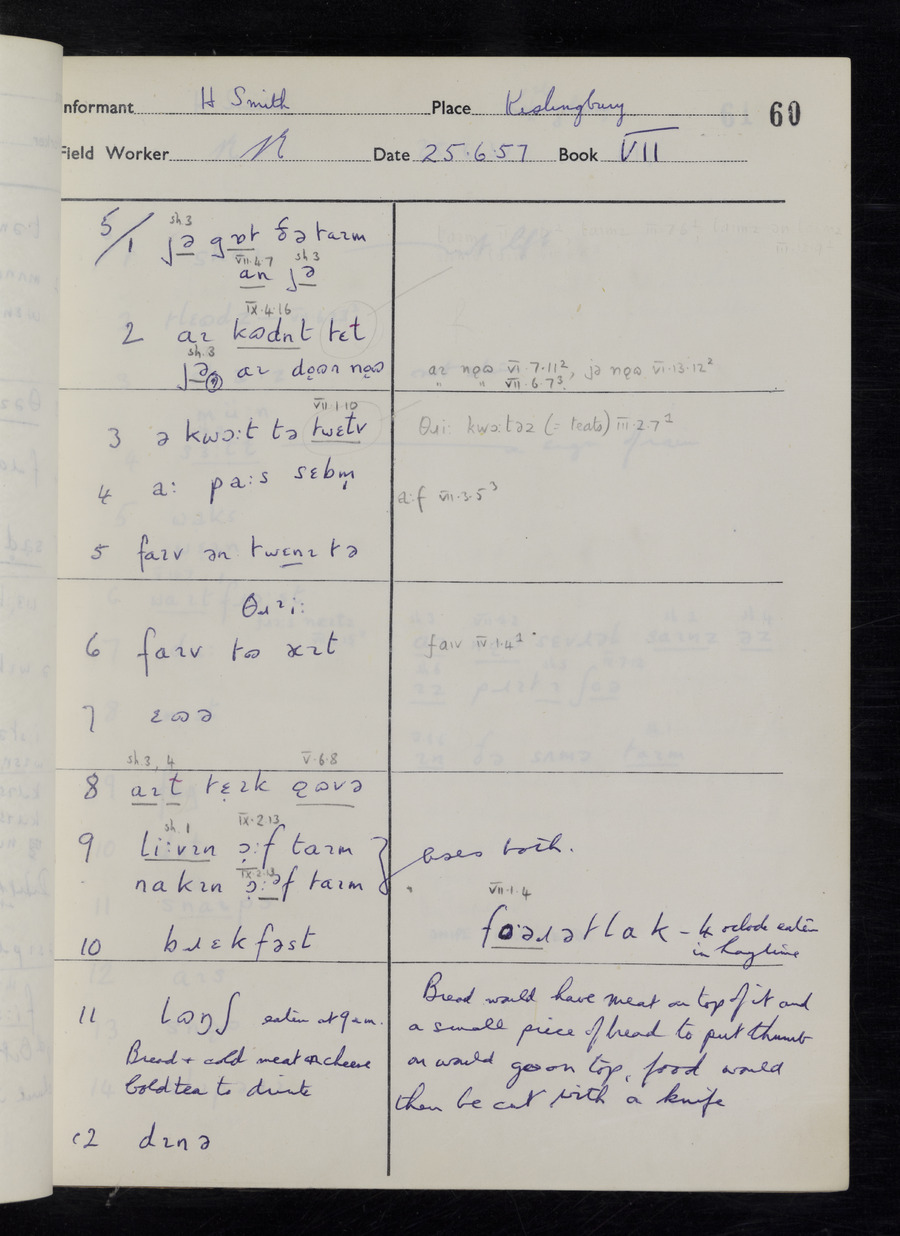 Informant H Smith Place Kislingbury 60
Field Worker Date 25.6.57 Book VII
5/1 sh.3
ʃə gɒt ðə taɪm
VII.4.7 sh 3
an ʃə
IX.4.16
2 aɪ kʊdnt tɛt
sh.3
aɪ nǫʊ VI.7.11², jə nǫʊ VI.13.12²
" " VII.6.7³
VII.1.10
3 ə kwɔ:t tə twɛtv θɹi: kwɔ:təz (= teats) III.2.7¹
4 a: pa:s sɛbm̩ a:f VII.3.5³
5 faɪv ən twɛnɪ tə
θɹɪi:
6 faɪv tʊ ɛɪt faɪv IV.1.4¹
7 ɛʊə
sh.3, 4 V.6.8
8 aɪt tɛɪk ǫʊvə
sh.1 IX.2.13
9 li:vɪn ɔ:f taɪm uses both.
IX.2.13
nakɪn ɔ:əf taɪm
VII.1.4
10 bɹɛkfəst fɔəɹətlak – 4 oclock eaten
in haytime
11 lʊnʃ eaten at 9 am. Bread would have meat on top of it and
a small piece of bread to put thumb
Bread + cold meat or cheese on would go on top, food would
Cold tea to drink then be cut with a knife
12 dɪnə